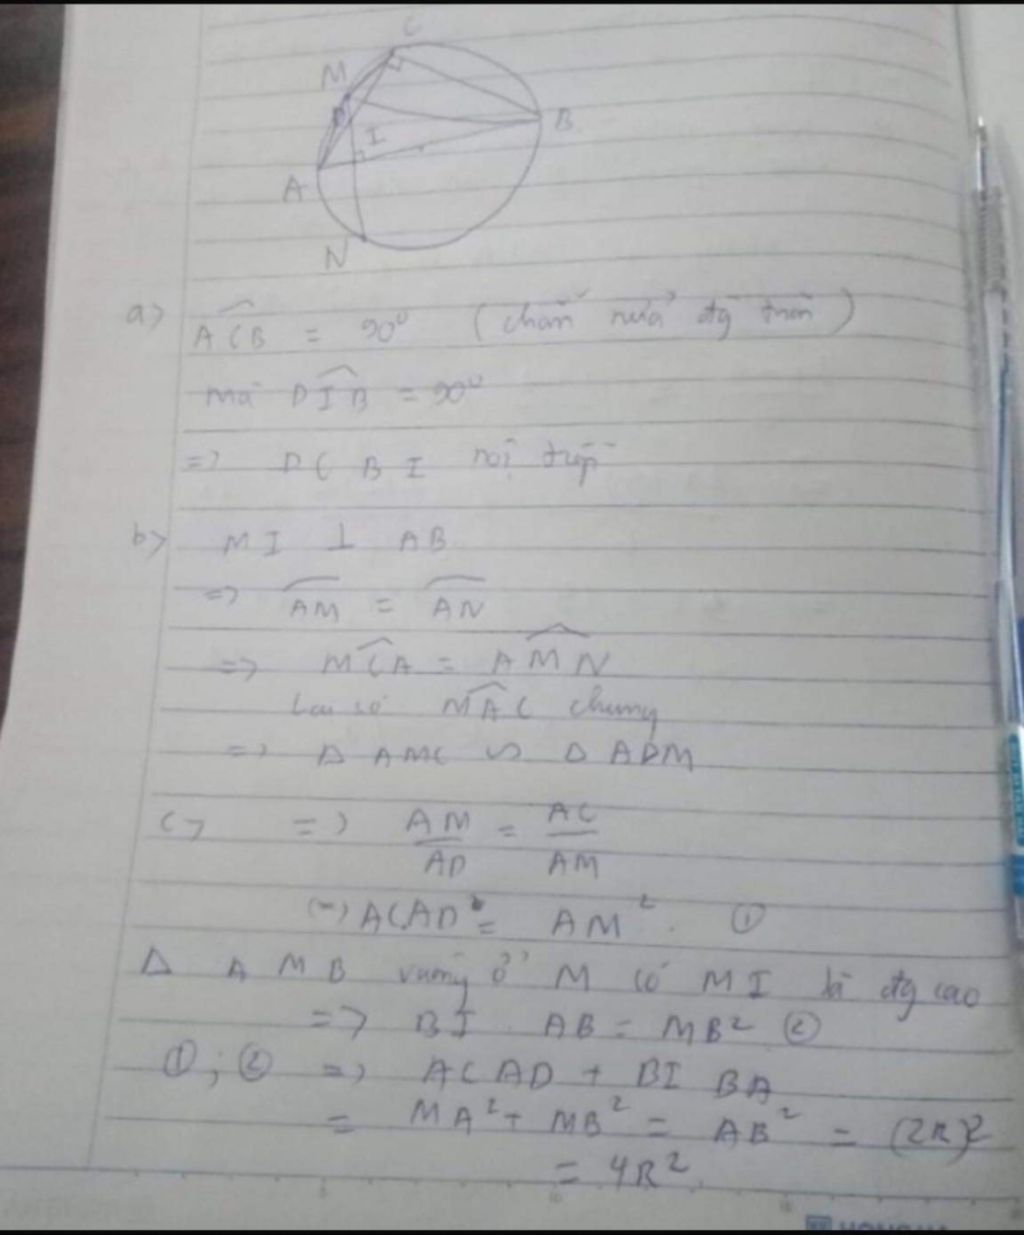 C
M
D
I
B
A
N
a> ACB = 90° (chắn nửa đg tròn)
mà DIB = 90°
=> DCBI nội tiếp
b> MI ⊥ AB
=> AM = AN
=> MCA = AMN
Lại có MAC chung
=> Δ AMC ∽ Δ ADM
c> => AM/AD = AC/AM
(=) AC.AD = AM². ①
Δ AMB vuông ở M có MI là đg cao
=> BI . AB = MB² ②
①; ② => AC AD + BI BA
= MA² + MB² = AB² = (2R)²
= 4R².